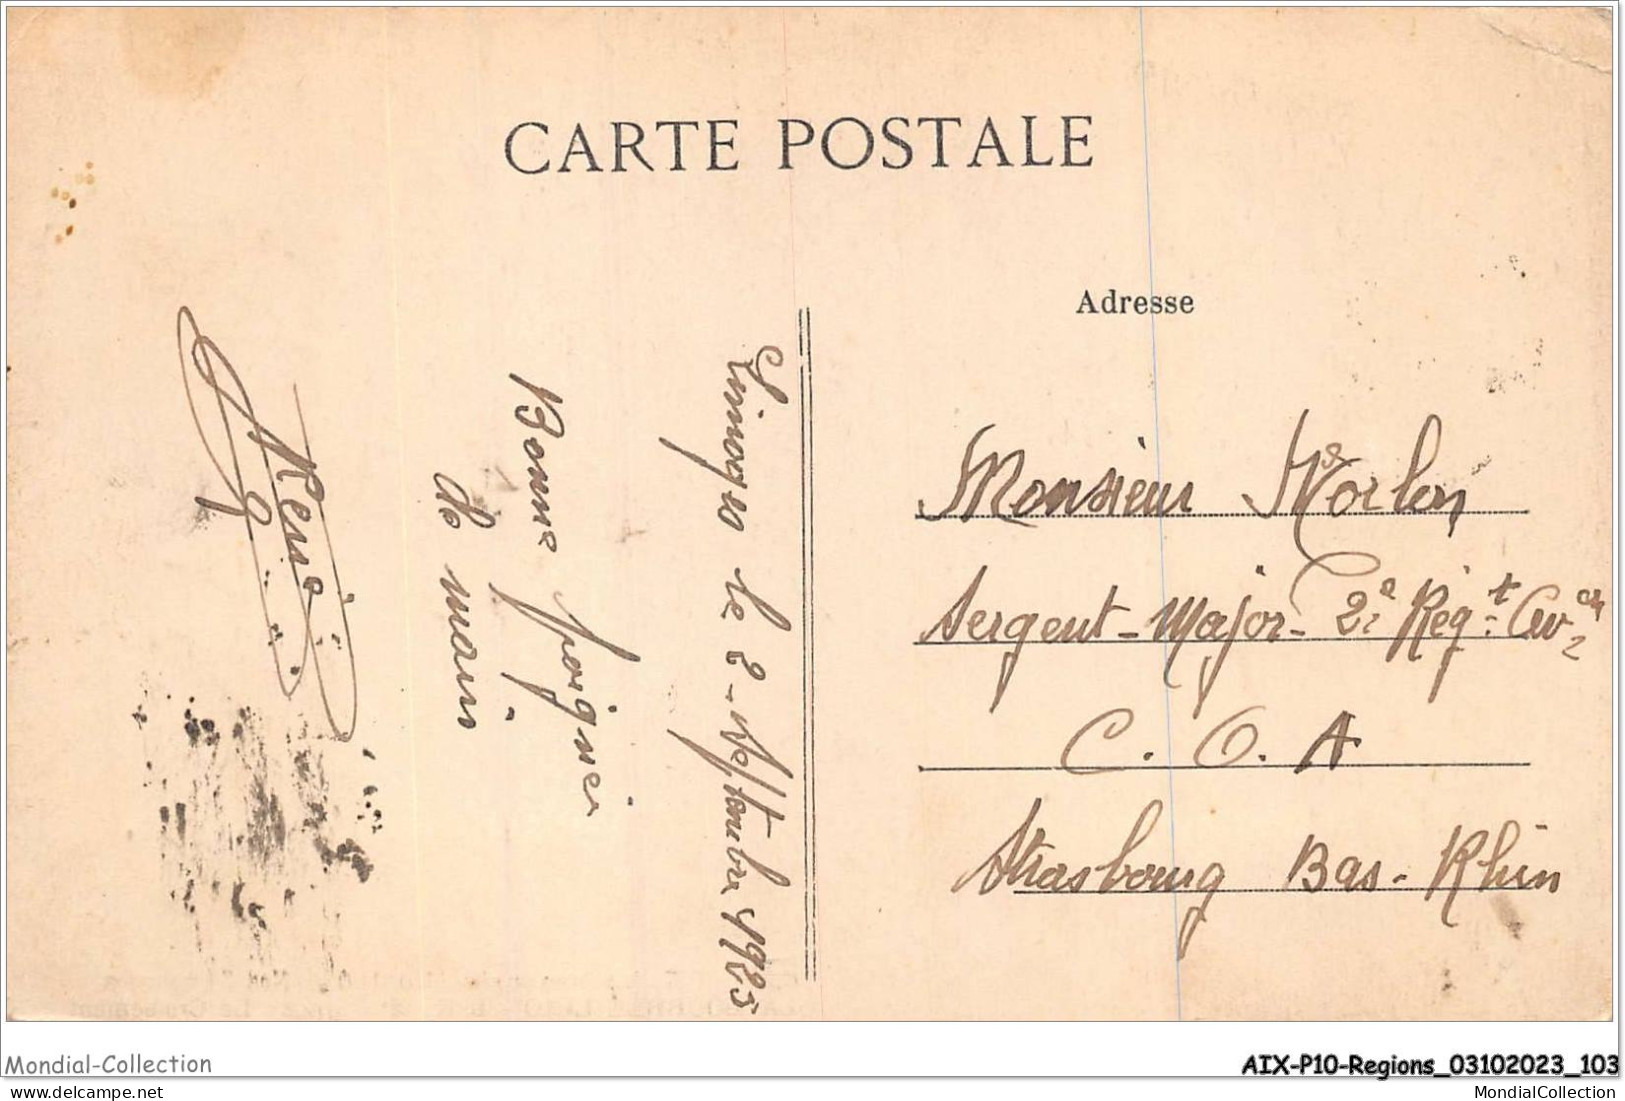 CARTE POSTALE
Adresse
Limoges le 2 - Septembre 1925
Bonne poignée
de main
René
Monsieur Morlon
Sergent-Major - 2e Régt. Avon
C. O. A
Strasbourg Bas-Rhin
Mondial-Collection
AIX-P10-Regions_03102023_103
MondialCollection